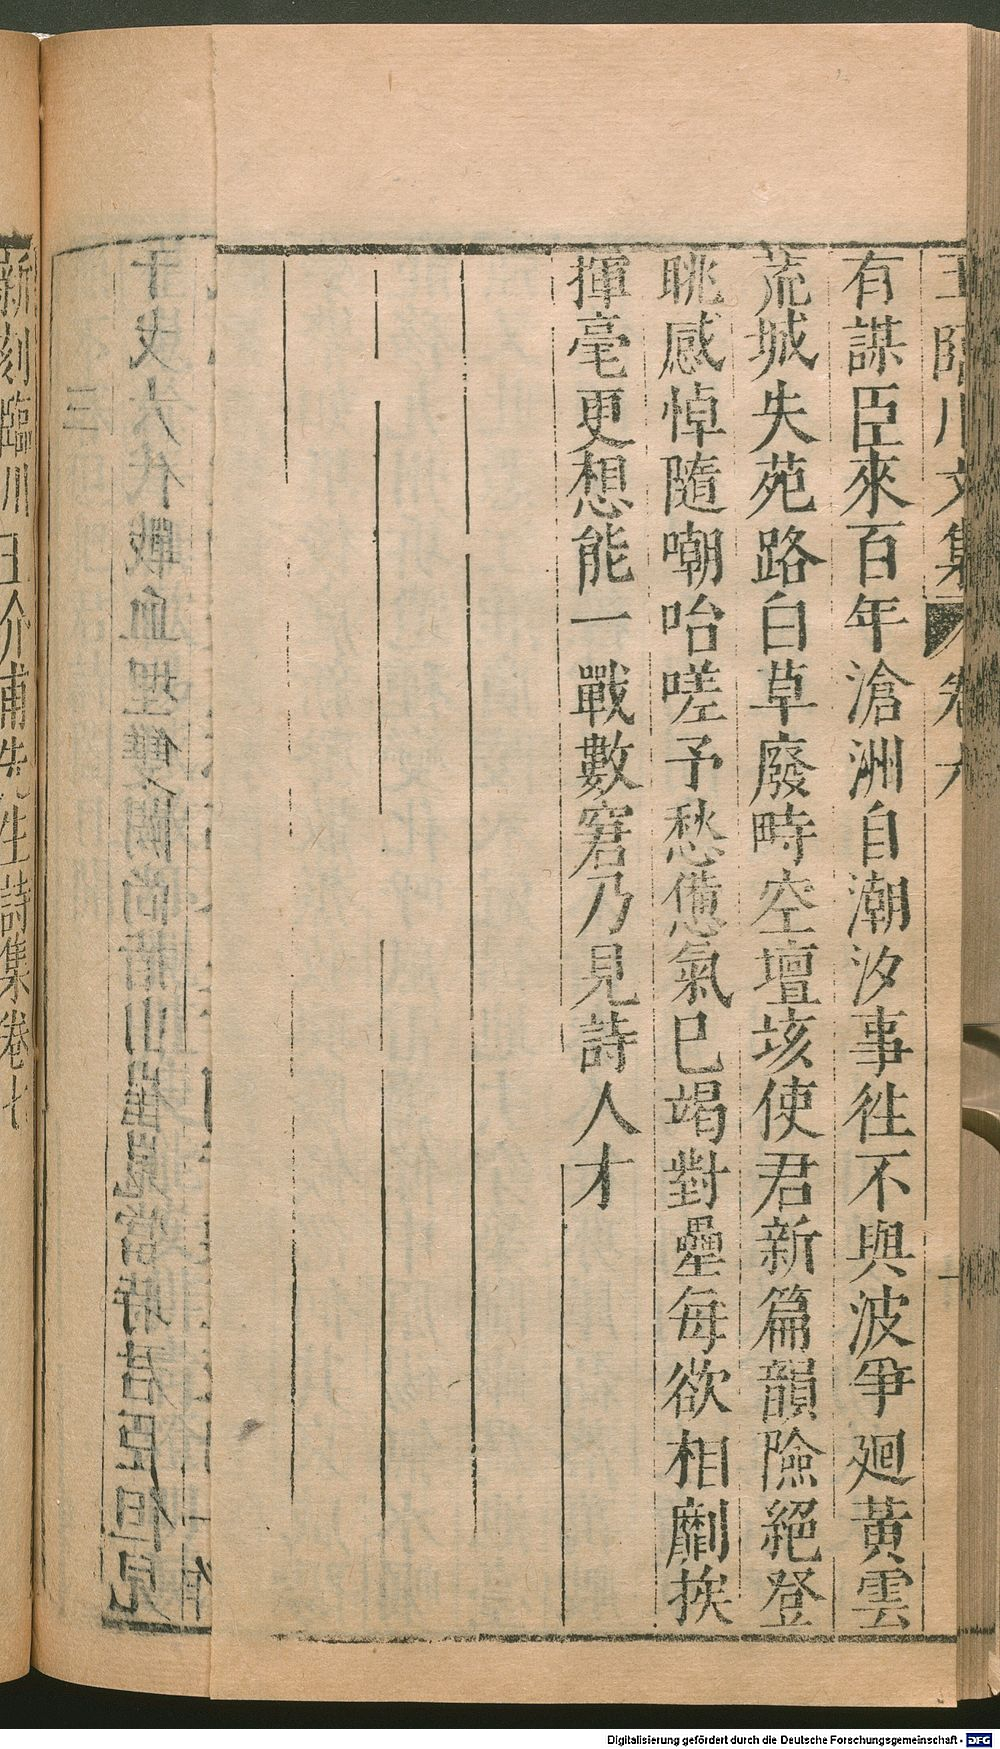 王臨川文集 卷六
有謀臣來百年滄洲自潮汐事徃不與波爭廻黃雲
荒城失苑路白草廢畤空壇垓使君新篇韻險絕登
眺感悼隨嘲咍嗟予愁憊氣已竭對壘每欲相劘挨
揮毫更想能一戰數窘乃見詩人才
新刻臨川王介甫先生詩集卷七
Digitalisierung gefördert durch die Deutsche Forschungsgemeinschaft - DFG